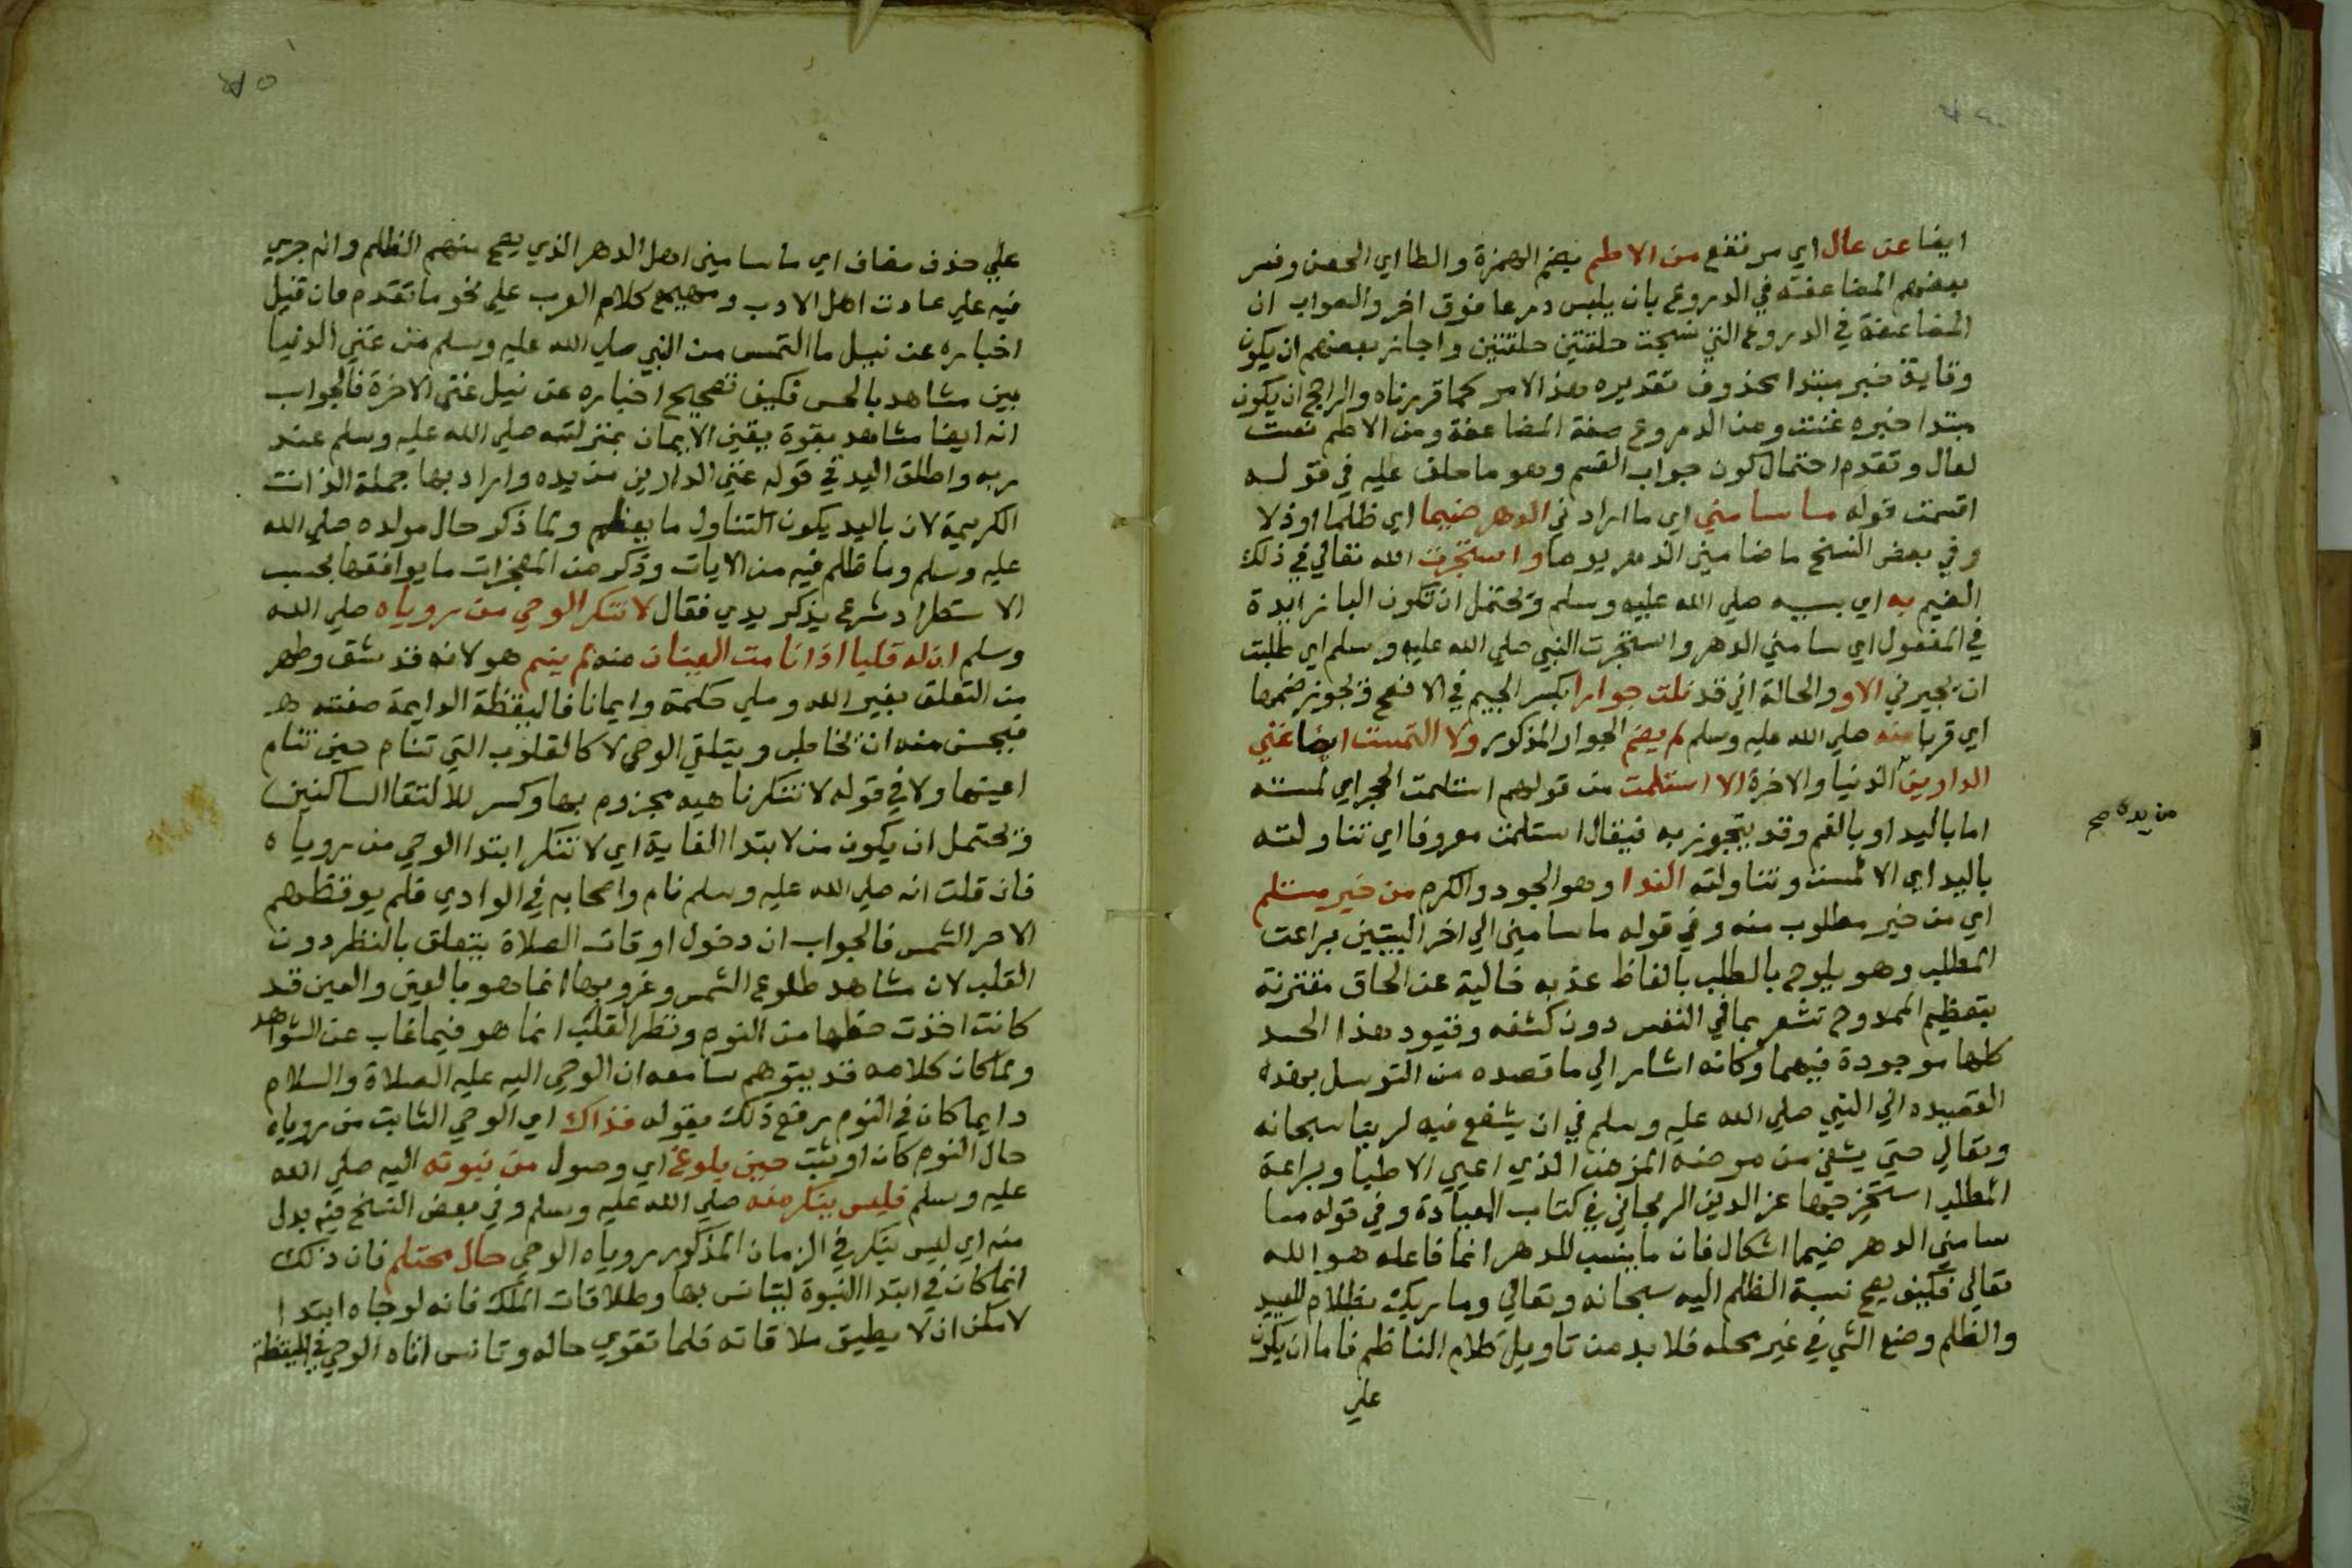 ايضا عن عال اي مرتفع من الاطم بضم الهمزة والطا اي الحصن وفسر
بعضهم المضاعفة في الدروع بان يلبس درعا فوق اخر والصواب ان
المضاعفة في الدروع التي نسجت حلقتين حلقتين واجاز بعضهم ان يكون
وقاية خبر مبتدا محذوف تقديره هذا الامر كما قررناه والراجح ان يكون
مبتدا خبره غنت ومن الدروع صفة المضاعفة ومن الاطم نعت
لعال وتقدم احتمال كون جواب القسم وهو ما حلف عليه في قوله
اقسمت قوله ما سامني اي ما ارادني الدهر ضيما اي ظلما او ذلا
وفي بعض النسخ ما ضامني الدهر يوما واستجرت الله تعالي في ذلك
الضيم به اي بسببه صلي الله عليه وسلم ويحتمل ان تكون البا زايدة
في المفعول اي سامني الدهر واستجرت النبي صلي الله عليه وسلم اي طلبت
ان يجيرني الاو والحالة اني قد نلت جوارا بكسر الجيم في الافصح ويجوز ضمها
اي قربا منه صلي الله عليه وسلم لم يضم الجوار المذكور ولا التمست ايضا غني
الدارين الدنيا والاخرة الا استلمت من قولهم استلمت الحجر اي لمسته
من يده صح
اما باليد او بالفم وقد يتجوز به فيقال استلمت معروفا اي تناولته
باليد اي الا لمست وتناولته الندا وهو الجود والكرم من خير مستلم
اي من خير مطلوب منه وفي قوله ما سامني الي اخر البيتين براعت
المطلب وهو يلوح بالطلب بالفاظ عذبه خالية عن الحاق مقترنة
بتعظيم الممدوح تشعر بما في النفس دون كشفه وقيود هذا الحد
كلها موجودة فيهما وكانه اشار الي ما قصده من التوسل بهذه
القصيده الي النبي صلي الله عليه وسلم في ان يشفع فيه لربنا سبحانه
وتعالي حتي يشفي من مرضه المزمن الذي اعيي الاطبا وبراعة
المطلب استخرجها عز الدين الزنجاني في كتاب العيادة وفي قوله ما
سامني الدهر ضيما اشكال فان ما ينسب للدهر انما فاعله هو الله
تعالي فكيف يصح نسبة الظلم اليه سبحانه وتعالي وما ربك بظلام للعبيد
والظلم وضع الشي في غير محله فلا بد من تاويل كلام الناظم فاما ان يكون
علي
علي حذف مضاف اي ما سامني اهل الدهر الذي يصح منهم الظلم وانه جري
فيه علي عادت اهل الادب ومهيع كلام العرب علي نحو ما تقدم فان قيل
اخباره عن نيل ما التمس من النبي صلي الله عليه وسلم من غني الدنيا
بين مشاهد بالحس فكيف تصحيح اخباره عن نيل غني الاخرة فالجواب
انه ايضا مشاهد بقوة يقين الايمان بمنزلته صلي الله عليه وسلم عند
ربه واطلق اليد في قوله غني الدارين من يده واراد بها جملة الذات
الكريمة لان باليد يكون التناول ما يعظم ولما ذكر حال مولده صلي الله
عليه وسلم وما ظلم فيه من الايات وذكر من المعجزات ما يوافقها بحسب
الاستطراد شرع يذكر يدي فقال لا تنكر الوحي من روياه صلي الله
وسلم ان له قلبا اذا نامت العينان منه لم ينم هو لانه قد شق وطهر
من التعلق بغير الله وملي حكمة وايمانا فاليقظة الدايمة صفته هـ
فيحسن منه ان يخاطب ويتلقي الوحي لا كالقلوب التي تنام حين تنام
اعينها ولا في قوله لا تنكر ناهيه مجزوم بها وكسر للالتقا الساكنين
ويحتمل ان يكون من لابتدا الغاية اي لا تنكر ابتدا الوحي من روياه
فان قلت انه صلي الله عليه وسلم نام واصحابه في الوادي فلم يوقظهم
الا حر الشمس فالجواب ان دخول اوقات الصلاة يتعلق بالنظر دون
القلب لان مشاهد طلوع الشمس وغروبها انما هو بالعين والعين قد
كانت اخذت حظها من النوم ونظر القلب انما هو فيما غاب عن الشواهد
ولما كان كلامه قد يتوهم سامعه ان الوحي اليه عليه الصلاة والسلام
دايما كان في النوم رفع ذلك بقوله فذاك اي الوحي الثابت من روياه
حال النوم كان او يثبت حين بلوغ اي وصول من نبوته اليه صلي الله
عليه وسلم فليس ينكر منه صلي الله عليه وسلم وفي بعض النسخ فيه بدل
منه اي ليس ينكر في الزمان المذكور روياه الوحي حال محتلم فان ذلك
انما كان في ابتدا النبوة ليتانس بها وطلاقات الملك فانه لو جاه ابتدا
لامكن ان لا يطيق ملاقاته فلما تقوي حاله وتانس اتاه الوحي في اليقظة